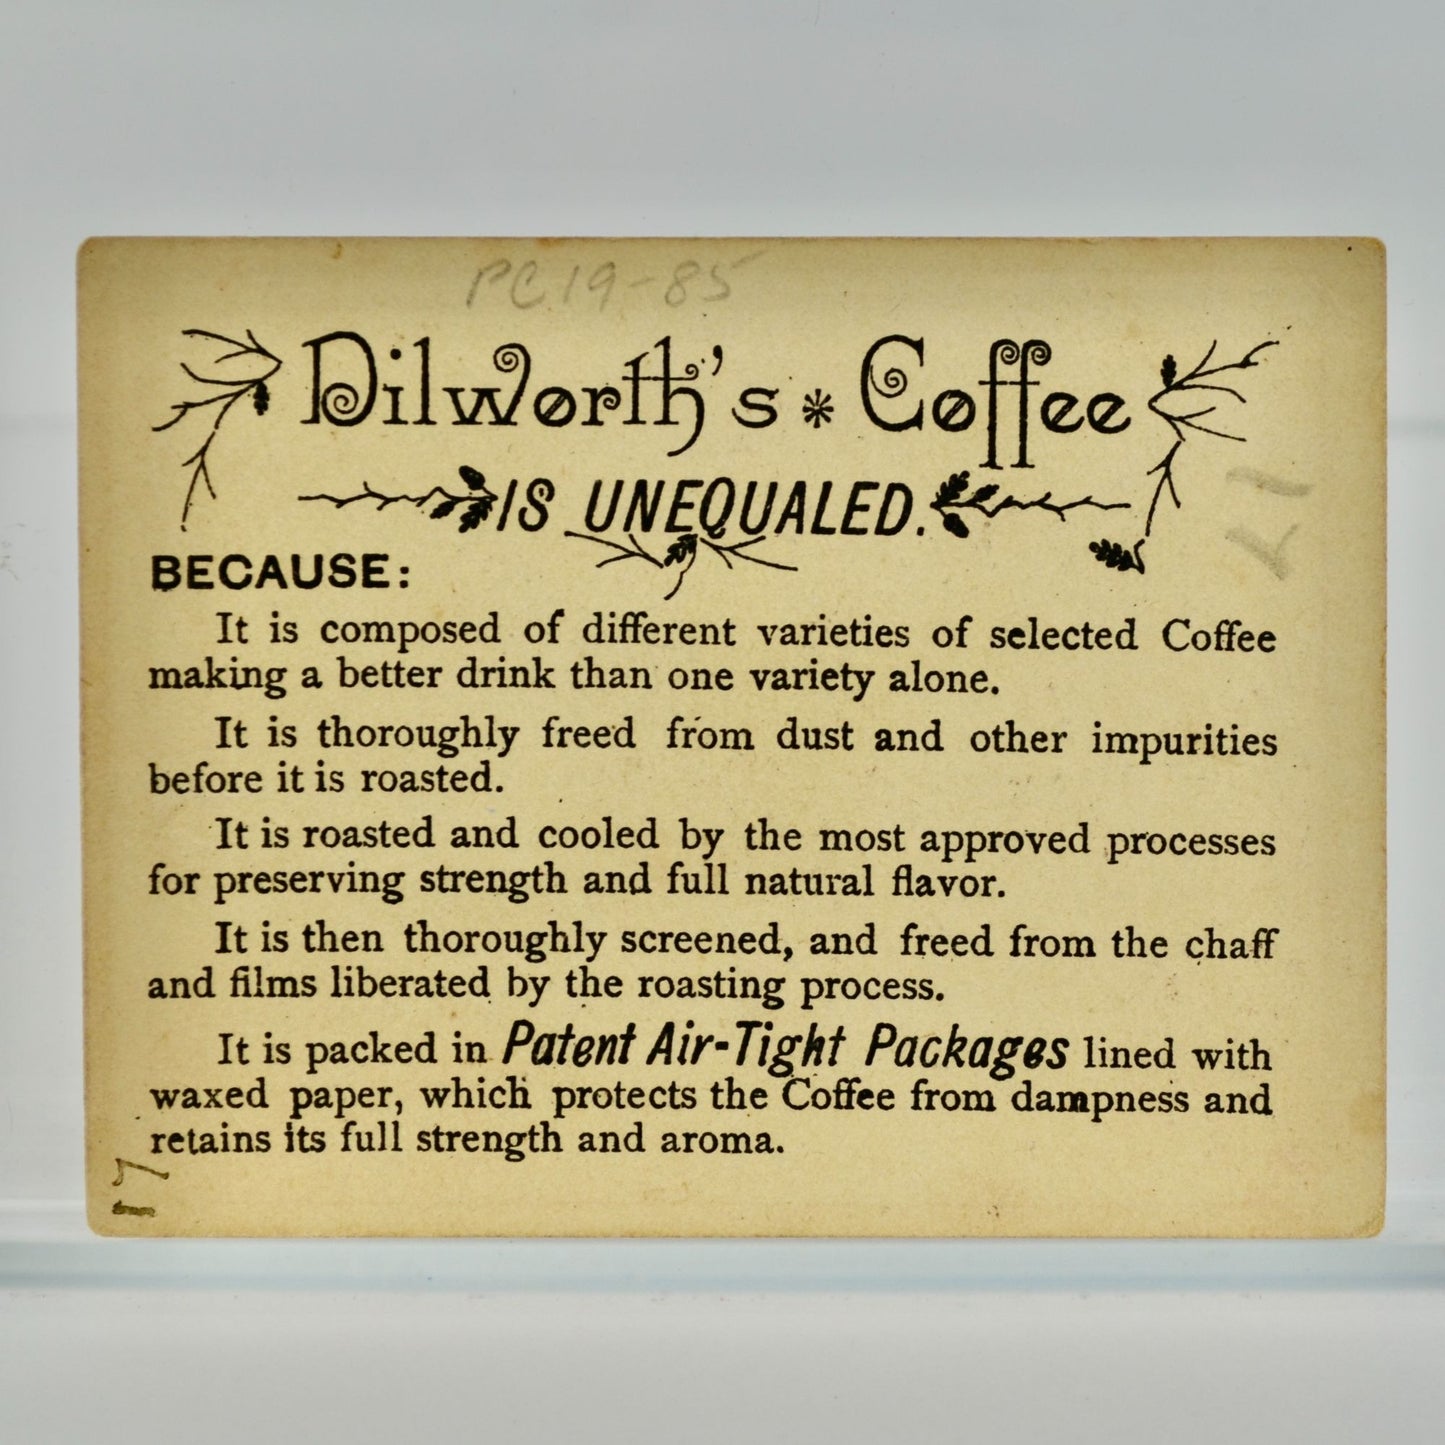 PC 19-85
Dilworth's * Coffee
IS UNEQUALED.
BECAUSE:
It is composed of different varieties of selected Coffee
making a better drink than one variety alone.
It is thoroughly freed from dust and other impurities
before it is roasted.
It is roasted and cooled by the most approved processes
for preserving strength and full natural flavor.
It is then thoroughly screened, and freed from the chaff
and films liberated by the roasting process.
It is packed in Patent Air-Tight Packages lined with
waxed paper, which protects the Coffee from dampness and
retains its full strength and aroma.
17